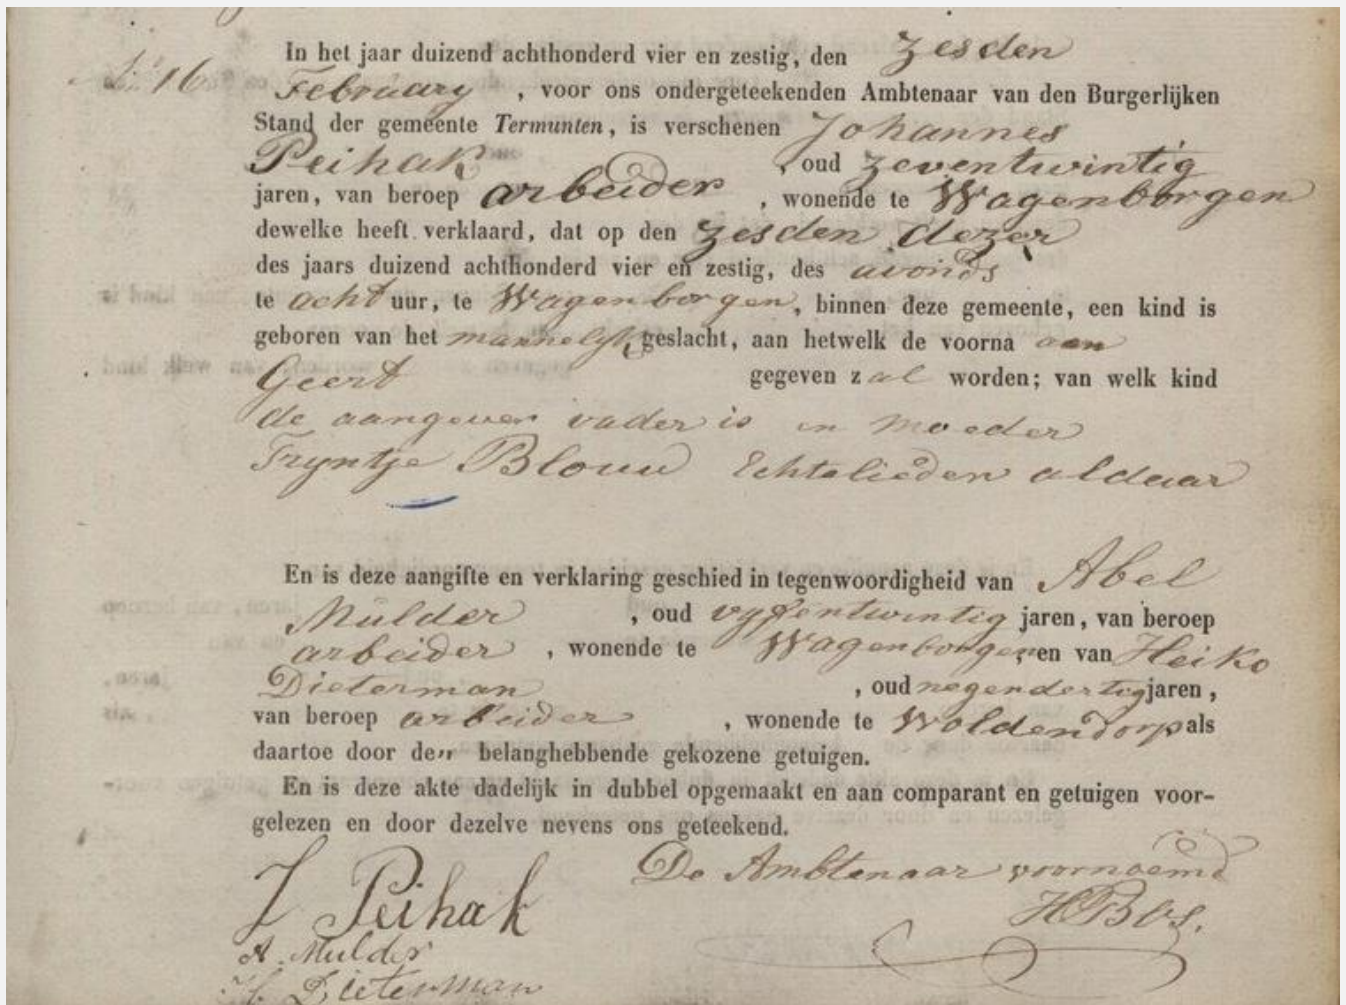 In het jaar duizend achthonderd vier en zestig, den zesden
No. 16 February, voor ons ondergeteekenden Ambtenaar van den Burgerlijken
Stand der gemeente Termunten, is verschenen Johannes
Peihak, oud zeventwintig
jaren, van beroep arbeider, wonende te Wagenborgen
dewelke heeft verklaard, dat op den zesden dezer
des jaars duizend achthonderd vier en zestig, des avonds
te acht uur, te Wagenborgen, binnen deze gemeente, een kind is
geboren van het mannelyk geslacht, aan hetwelk de voorna aan
Geert gegeven zal worden; van welk kind
de aangever vader is en moeder
Tryntje Blouw Echtelieden aldaar
En is deze aangifte en verklaring geschied in tegenwoordigheid van Abel
Mulder, oud vyfentwintig jaren, van beroep
arbeider, wonende te Wagenborgen, en van Heiko
Dieterman, oud negendertig jaren,
van beroep arbeider, wonende te Woldendorp als
daartoe door de" belanghebbende gekozene getuigen.
En is deze akte dadelijk in dubbel opgemaakt en aan comparant en getuigen voor-
gelezen en door dezelve nevens ons geteekend.
J Peihak De Ambtenaar voornoemd
A. Mulder HBos.
H. Dieterman